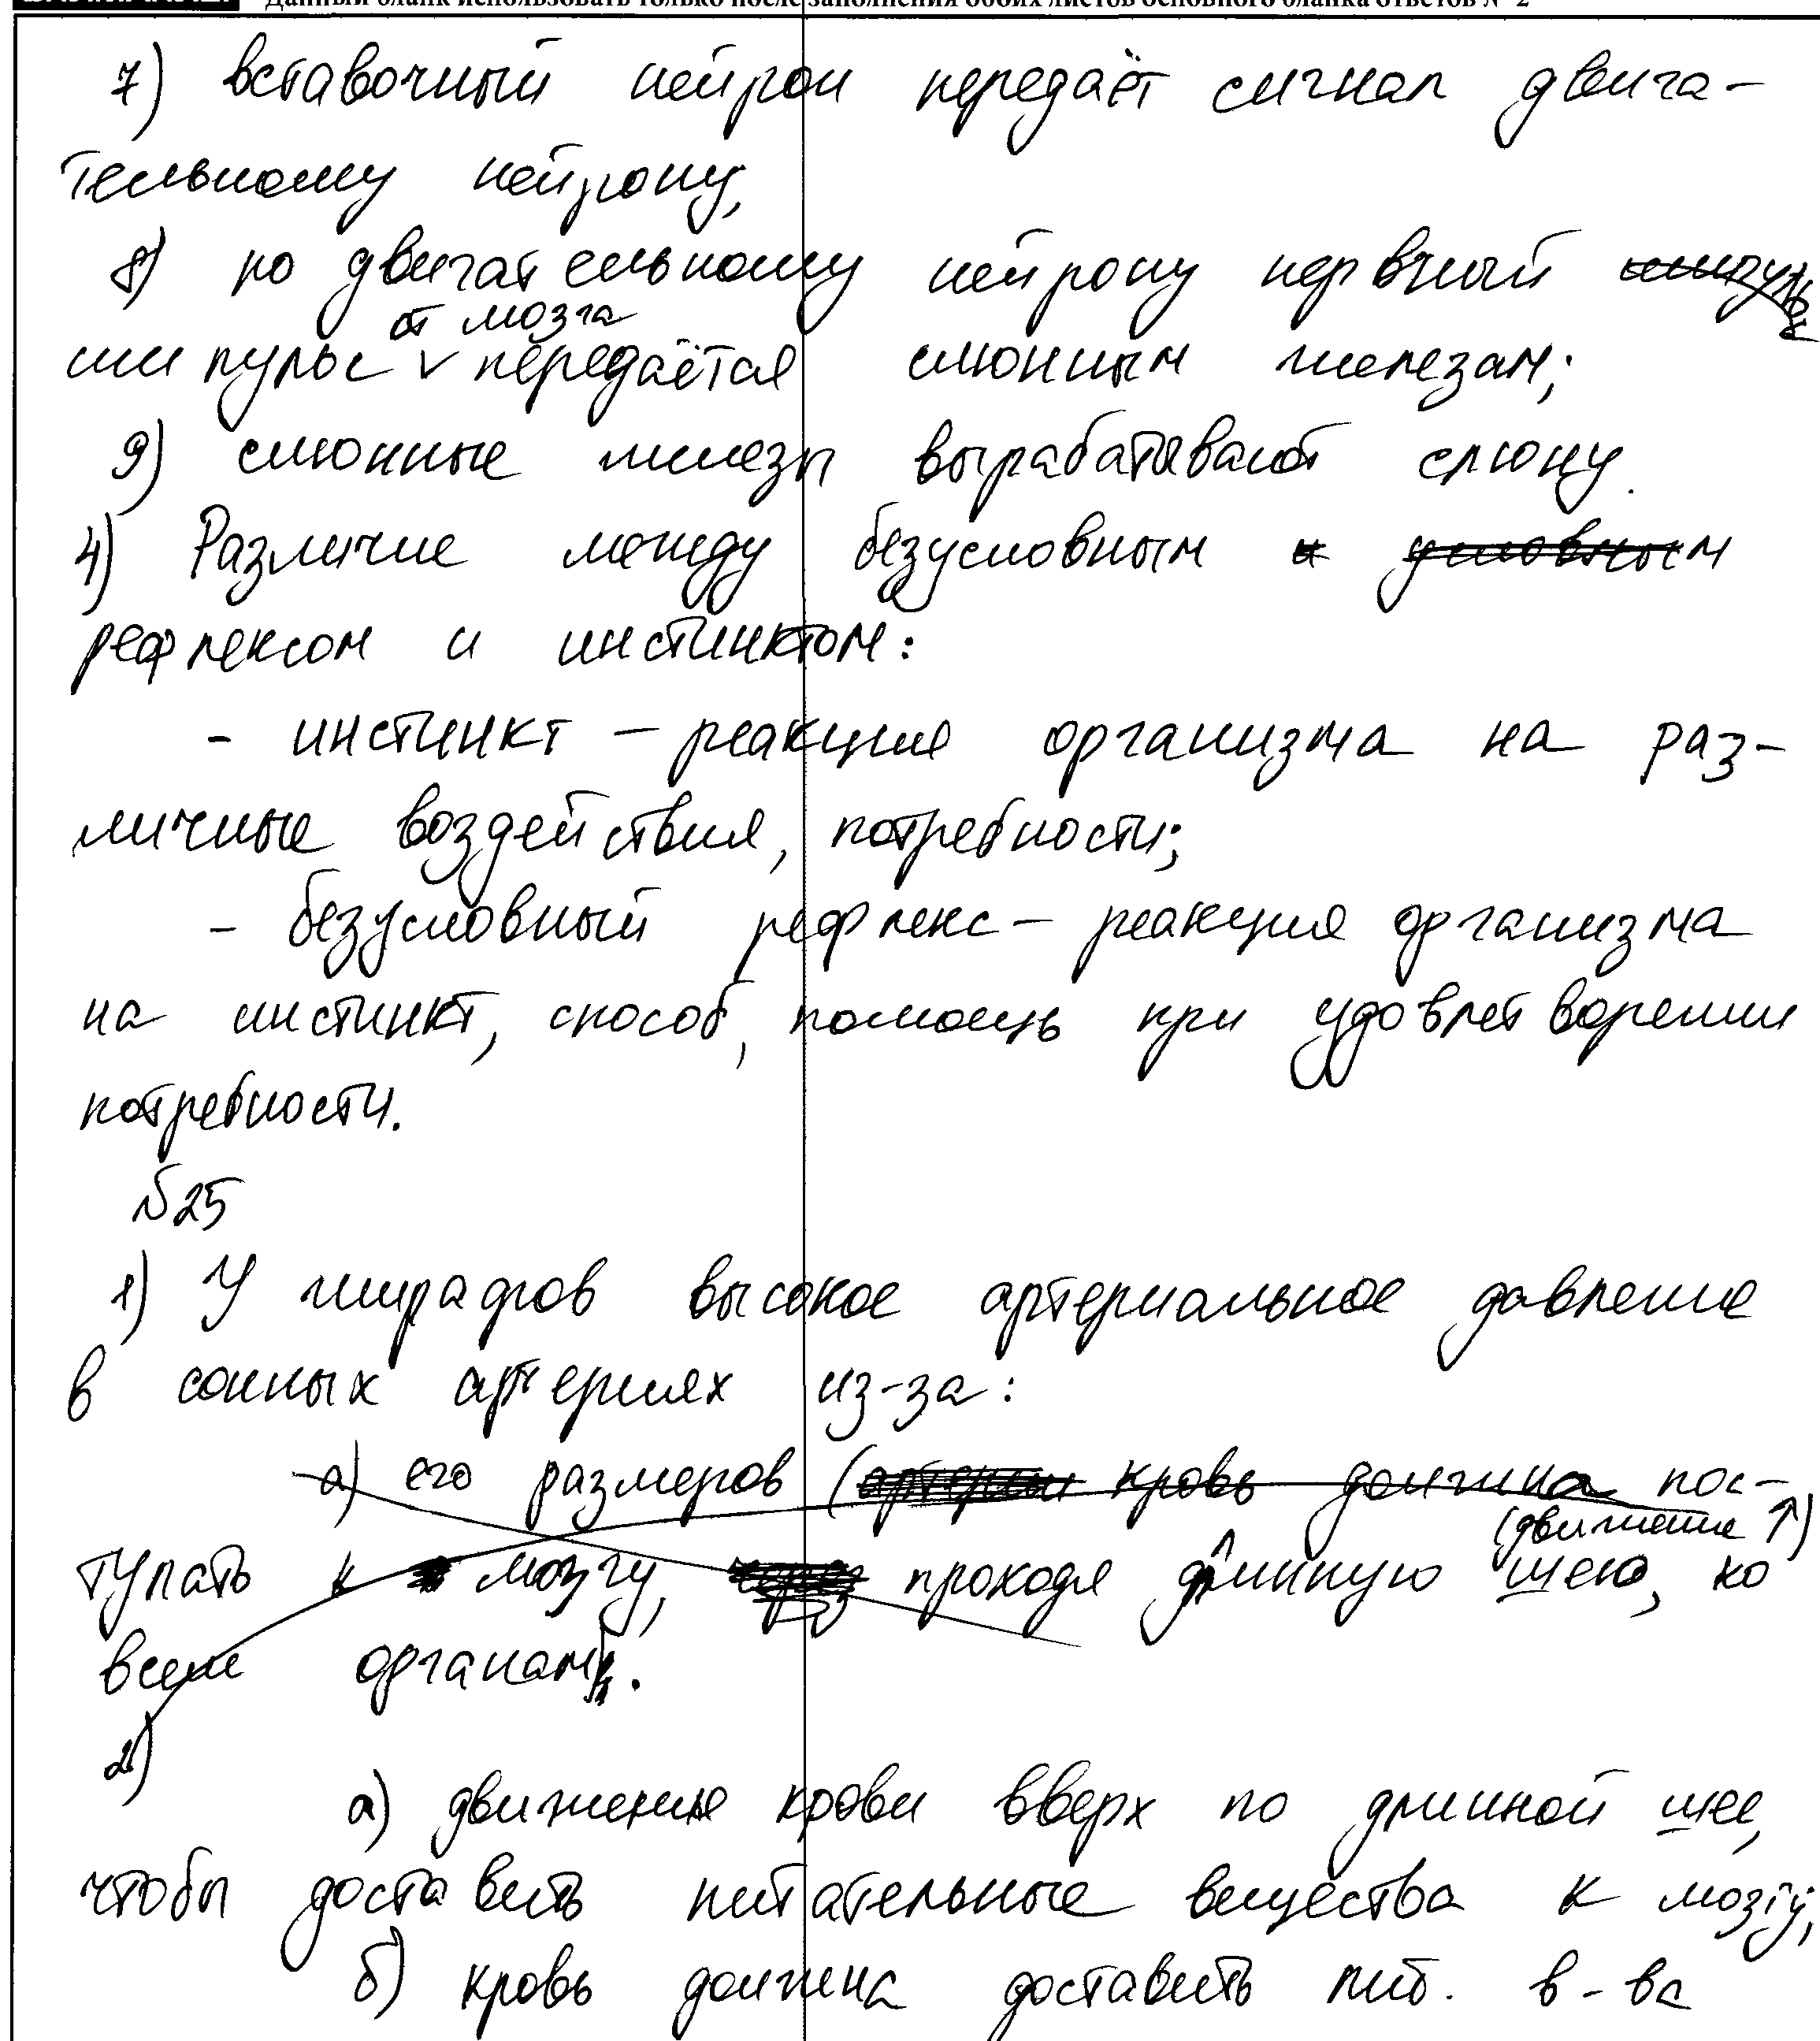 Данный бланк использовать только после заполнения обоих листов основного бланка ответов № 2
7) вставочный нейрон передаёт сигнал двига-
тельному нейрону;
8) по двигательному нейрону нервный импульс
от мозга
импульс v передаётся слюнным железам;
9) слюнные железы вырабатывают слюну.
4) Различие между безусловным и условным
рефлексом и инстинктом:
- инстинкт – реакция организма на раз-
личные воздействия, потребности;
- безусловный рефлекс – реакция организма
на инстинкт, способ, помощь при удовлетворении
потребности.
№25
1) У жирафов высокое артериальное давление
в сонных артериях из-за:
а) его размеров (артерии кровь должна пос-
(движение ↑)
тупать к мозгу, через проходя длинную шею, ко
всем органам.
2)
а) движение крови вверх по длинной шее,
чтобы доставить питательные вещества к мозгу;
б) кровь должна доставить пит. в-ва